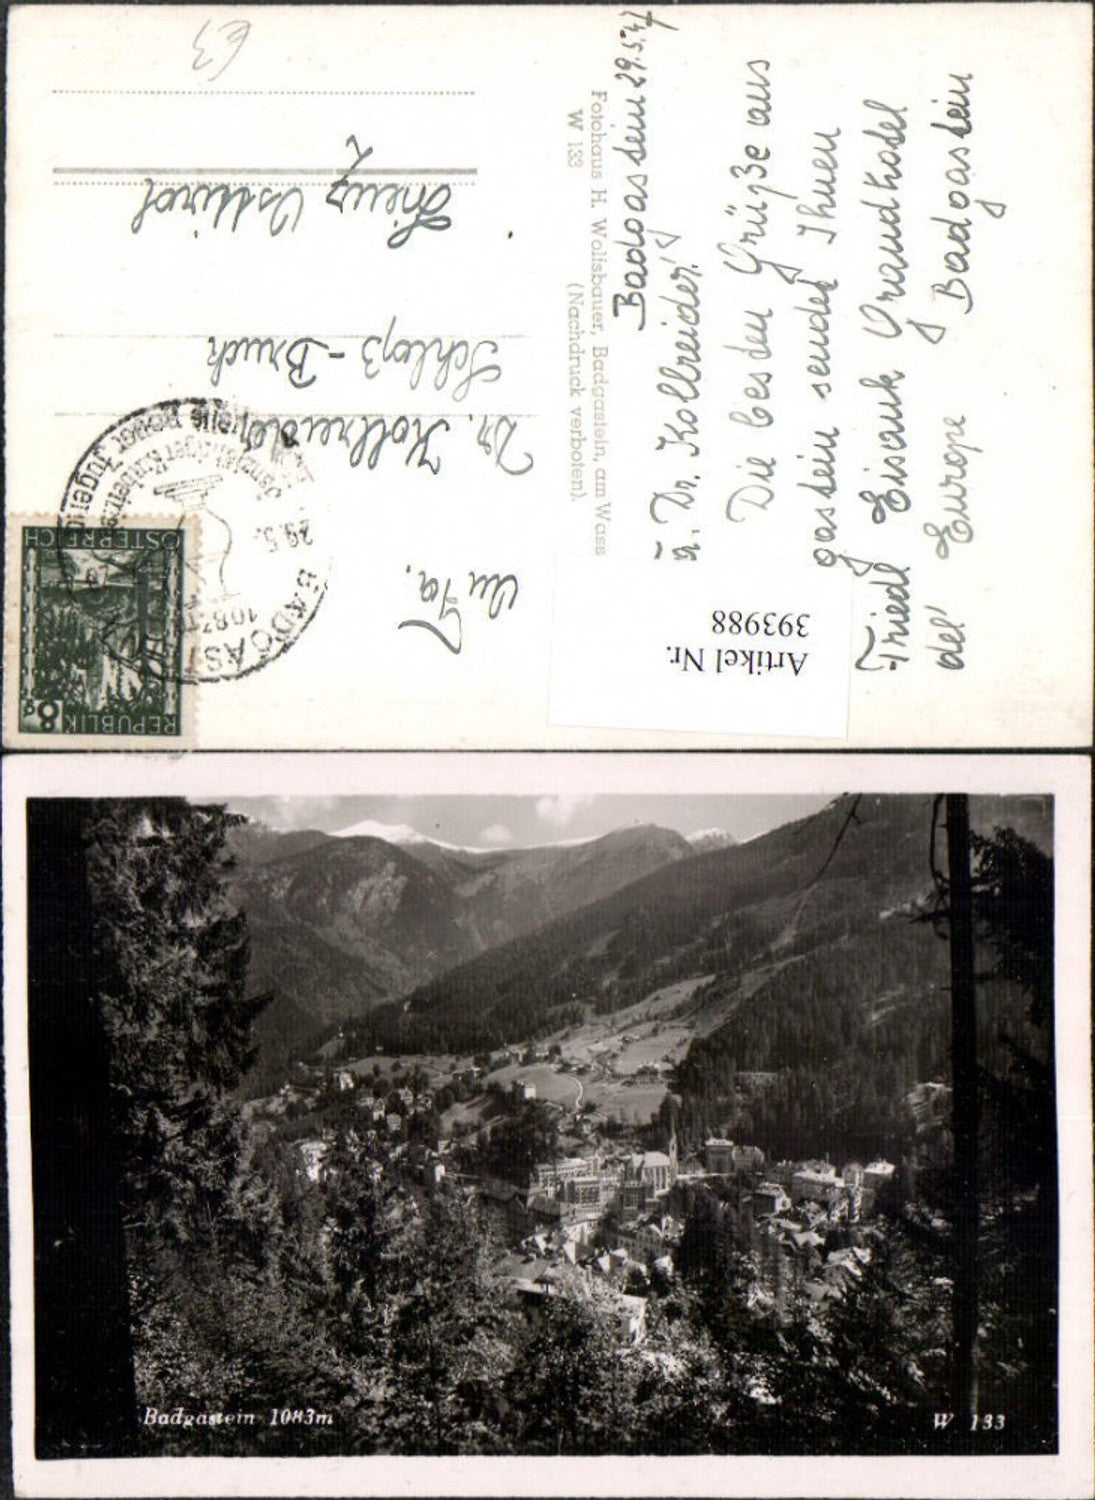 €3
Badgastein 29.5.47
Dr. Kollreider!
Die besten Grüße aus
gastein sendet Ihnen
Friedl Eisank Grandhotel
del' Europe Badgastein
Fotohaus H. Wolisbauer, Badgastein, am Wass
W 133
(Nachdruck verboten).
An Fa.
Dr. Kollreider
Schloß-Bruck
Lienz Osttirol
REPUBLIK
8g
ÖSTERREICH
BADGASTEIN
1083
29.5.
Jugend
Artikel Nr.
393988
Badgastein 1083m
W 133